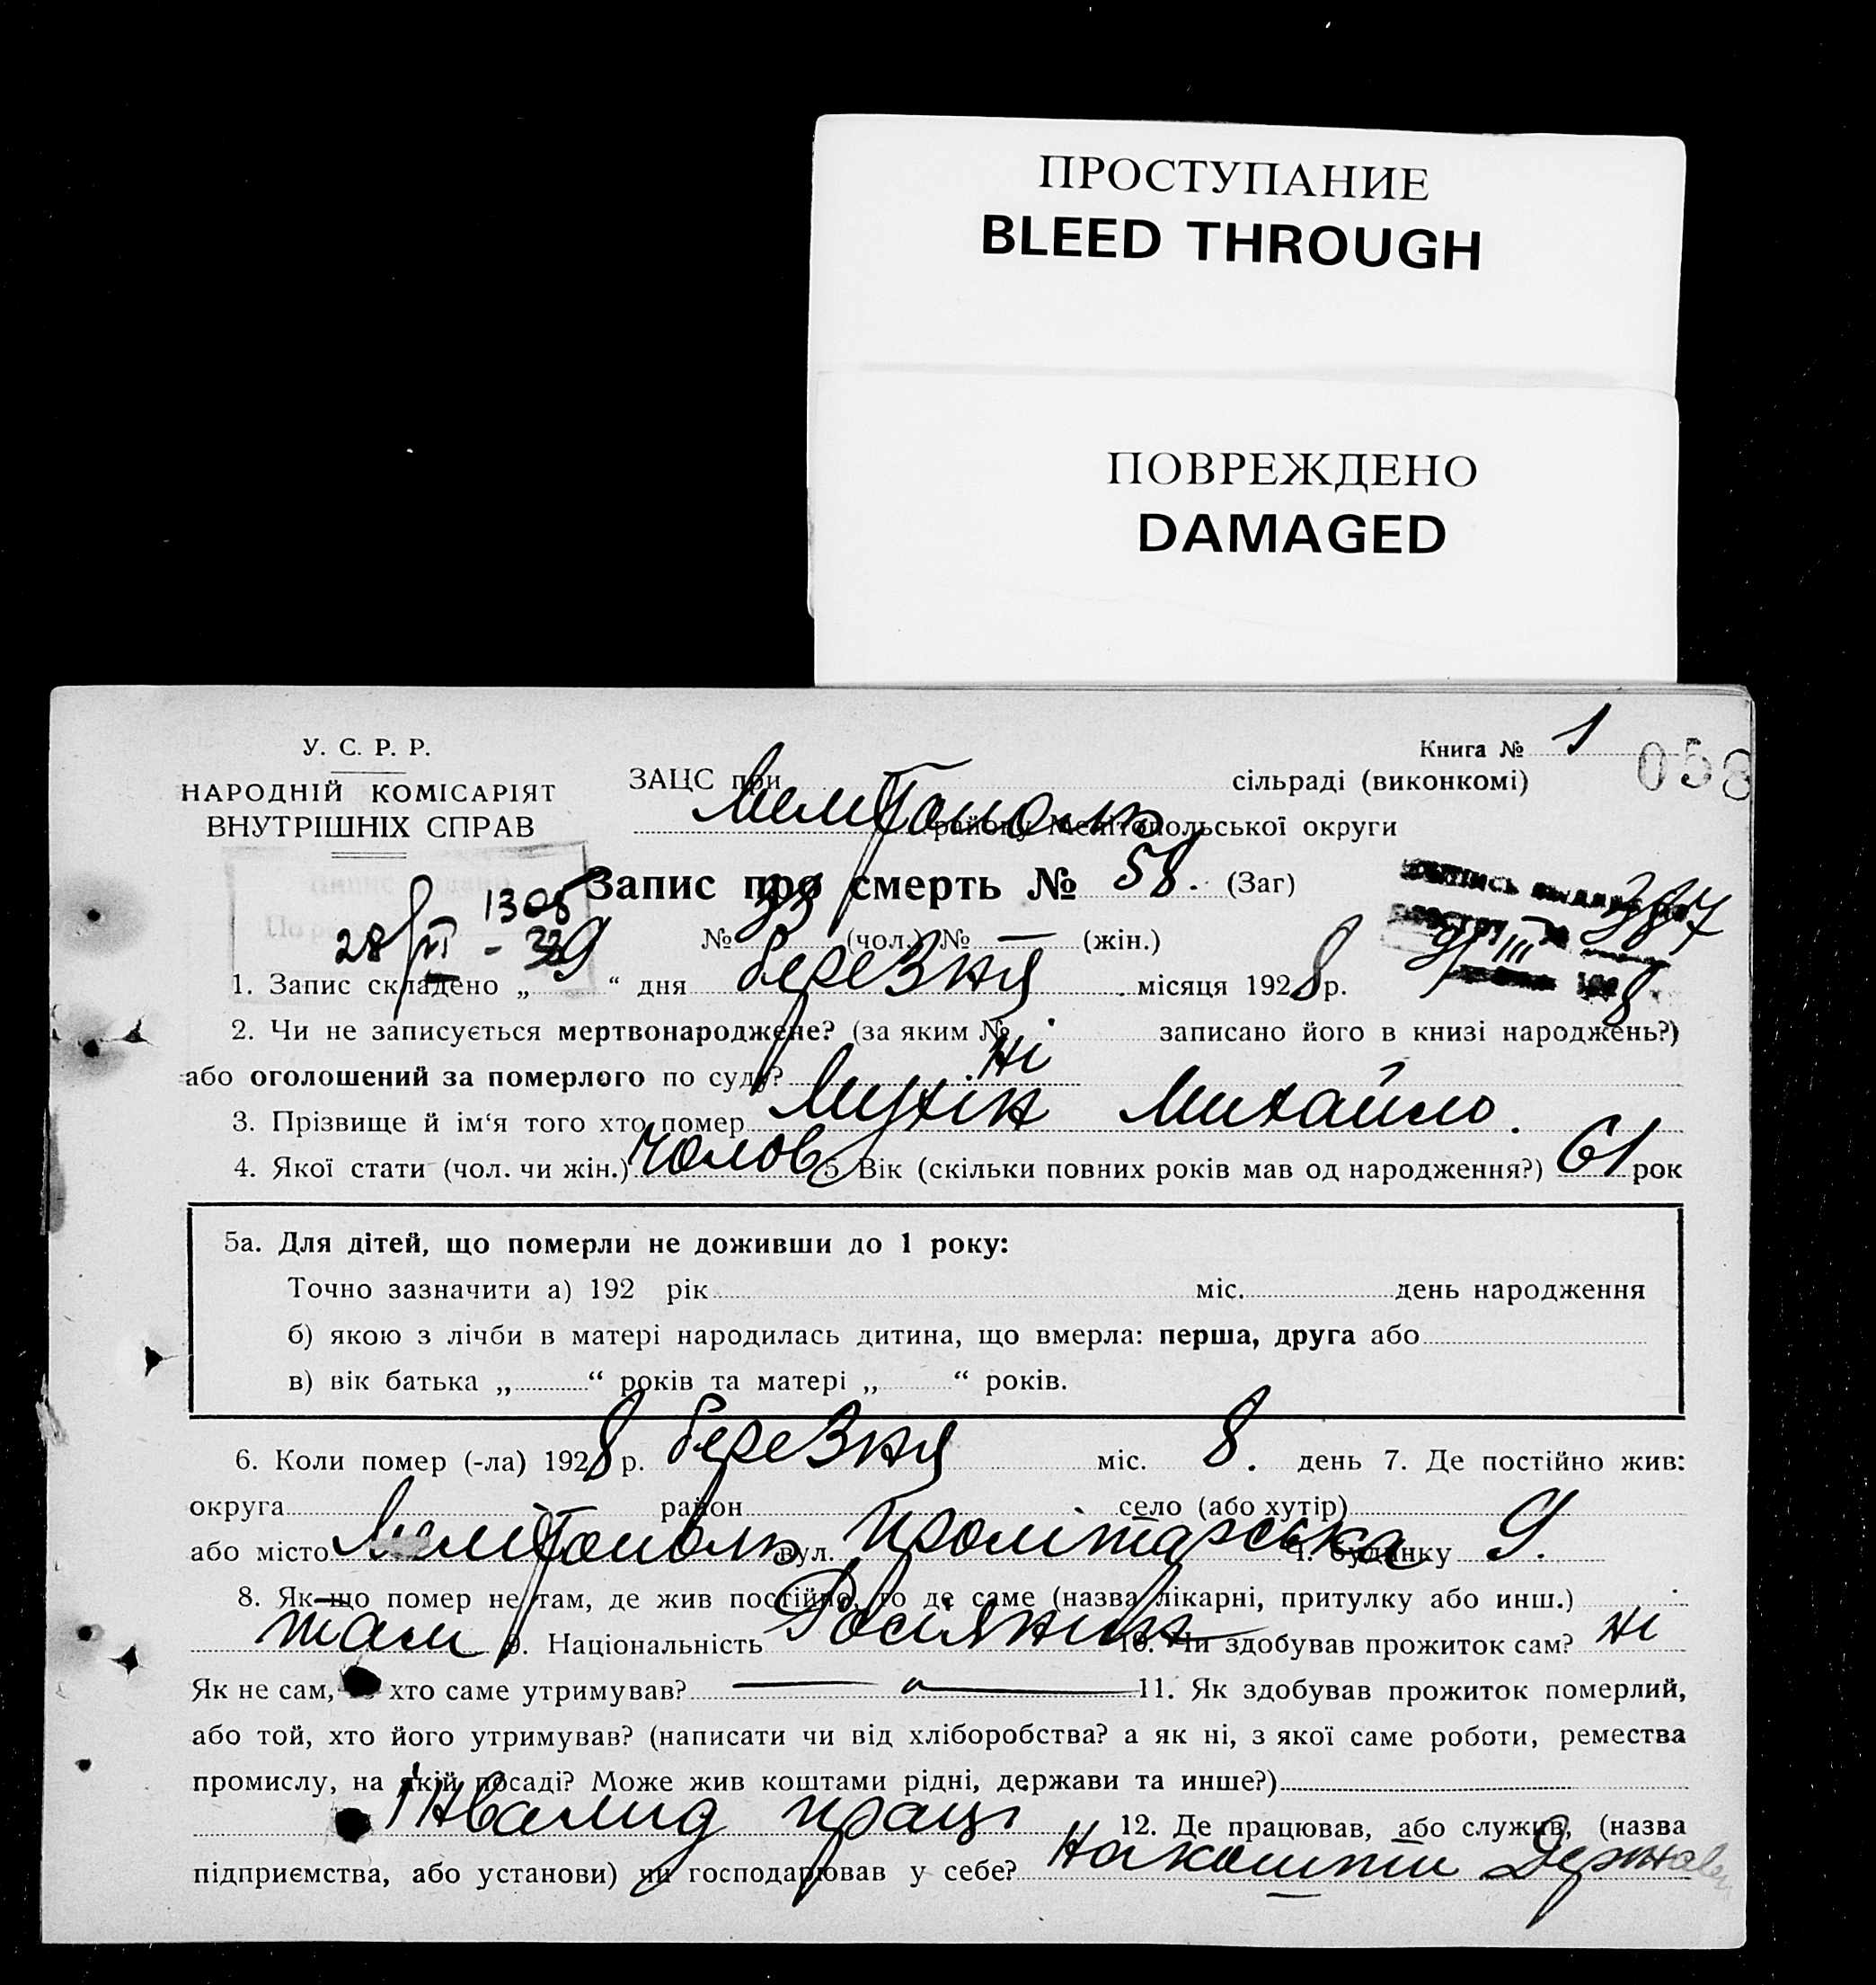 ПРОСТУПАНИЕ
BLEED THROUGH
ПОВРЕЖДЕНО
DAMAGED
У. С. Р. Р.
НАРОДНІЙ КОМІСАРІЯТ
ВНУТРІШНІХ СПРАВ
Книга № 1
058
ЗАЦС при сільраді (виконкомі)
Мелітополь району Мелітопольської округи
Запис про смерть № 58. (Заг)
1308
28/VII - 32
387
9/III 8
№ 33 (чол.) № — (жін.)
1. Запис складено „ 9 “ дня березня місяця 1928 р.
2. Чи не записується мертвонароджене? (за яким № записано його в книзі народжень?)
або оголошений за померлого по суду? ні
3. Прізвище й ім‘я того хто помер Мухін Михайло.
4. Якої стати (чол. чи жін.) чолов 5 Вік (скільки повних років мав од народження?) 61 рок
5а. Для дітей, що померли не доживши до 1 року:
Точно зазначити а) 192 рік міс. день народження
б) якою з лічби в матері народилась дитина, що вмерла: перша, друга або
в) вік батька „ “ років та матері „ “ років.
6. Коли помер (-ла) 1928 р. березня міс. 8. день 7. Де постійно жив:
округа район село (або хутір)
або місто Мелітополь вул. Пролітарська ч. будинку 9.
8. Як-що помер не там, де жив постійно, то де саме (назва лікарні, притулку або инш.)
там 9. Національність Росіянин 10. Чи здобував прожиток сам? ні
Як не сам, хто саме утримував? — „ — 11. Як здобував прожиток померлий,
або той, хто його утримував? (написати чи від хліборобства? а як ні, з якої саме роботи, ремества
промислу, на якій посаді? Може жив коштами рідні, держави та инше?)
Інвалид праці 12. Де працював, або служив, (назва
підприємства, або установи) чи господарював у себе? На кошти Держави